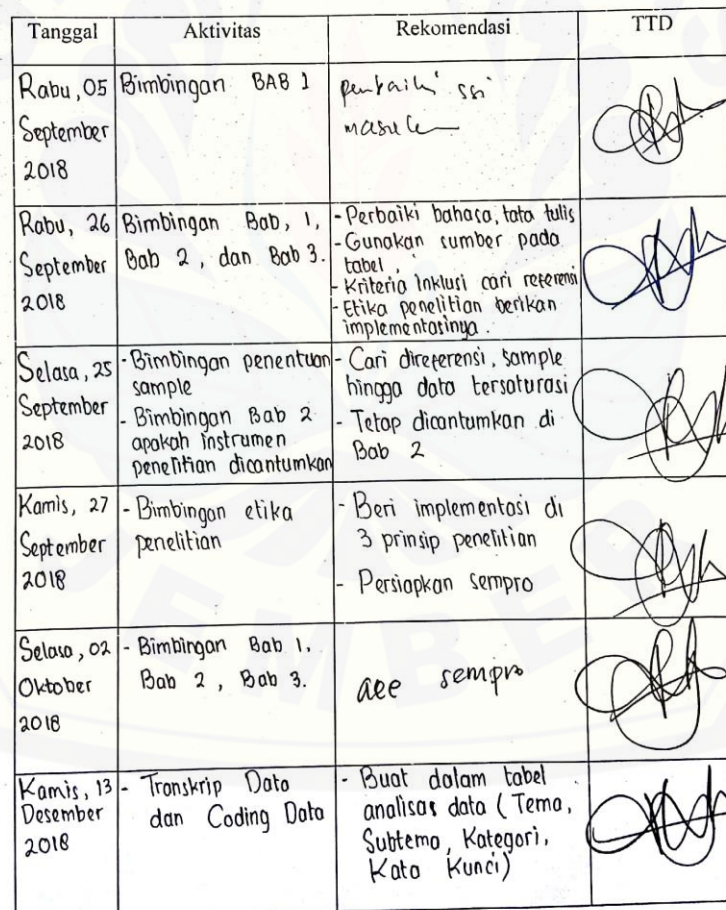 Tanggal Aktivitas Rekomendasi TTD
Rabu, 05
September
2018
Bimbingan BAB 1
perbaiki ssi
masuk
Rabu, 26
September
2018
Bimbingan Bab, 1,
Bab 2, dan Bab 3.
- Perbaiki bahasa, tata tulis
- Gunakan sumber pada
tabel,
- Kriteria inklusi cari referensi
- Etika penelitian berikan
implementasinya.
Selasa, 25
September
2018
- Bimbingan penentuan
sample
- Bimbingan Bab 2
apakah instrumen
penelitian dicantumkan
- Cari direferensi, sample
hingga data tersaturasi
- Tetap dicantumkan di
Bab 2
Kamis, 27
September
2018
- Bimbingan etika
penelitian
- Beri implementasi di
3 prinsip penelitian
- Persiapkan sempro
Selasa, 02
Oktober
2018
- Bimbingan Bab 1,
Bab 2, Bab 3.
acc sempro
Kamis, 13
Desember
2018
- Transkrip Data
dan Coding Data
- Buat dalam tabel
analisas data (Tema,
Subtema, Kategori,
Kata Kunci)
JEMBER